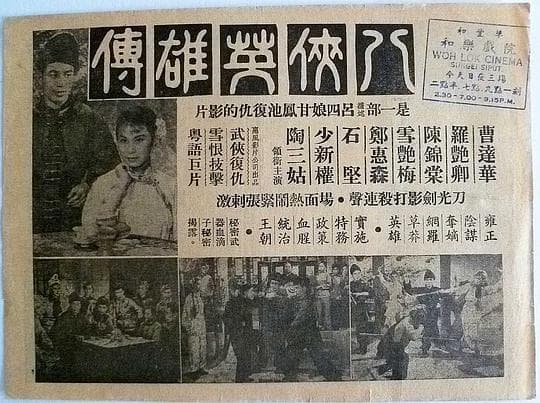 八俠英雄傳
和樂戲院
WOH LOK CINEMA
SUNGEI SIPUT
今天日夜三場
二點半 七點 九點一刻
2.30-7.00-9.15P.M.
是一部述呂四娘甘鳳池復仇的影片
曹達華
羅艷卿
陳錦棠
雪艷梅
鄭惠森
石堅
少新權
陶三姑
領銜主演
影片公司出品
武俠復仇
雪恨技擊
粵語巨片
刀光劍影打殺連聲・場面熱鬧緊張刺激
雍正
陰謀
奪嫡
網羅
草莽
英雄・
實施
特務
政策
血腥
統治
王朝・
秘密武
器血滴
子秘密
揭露。